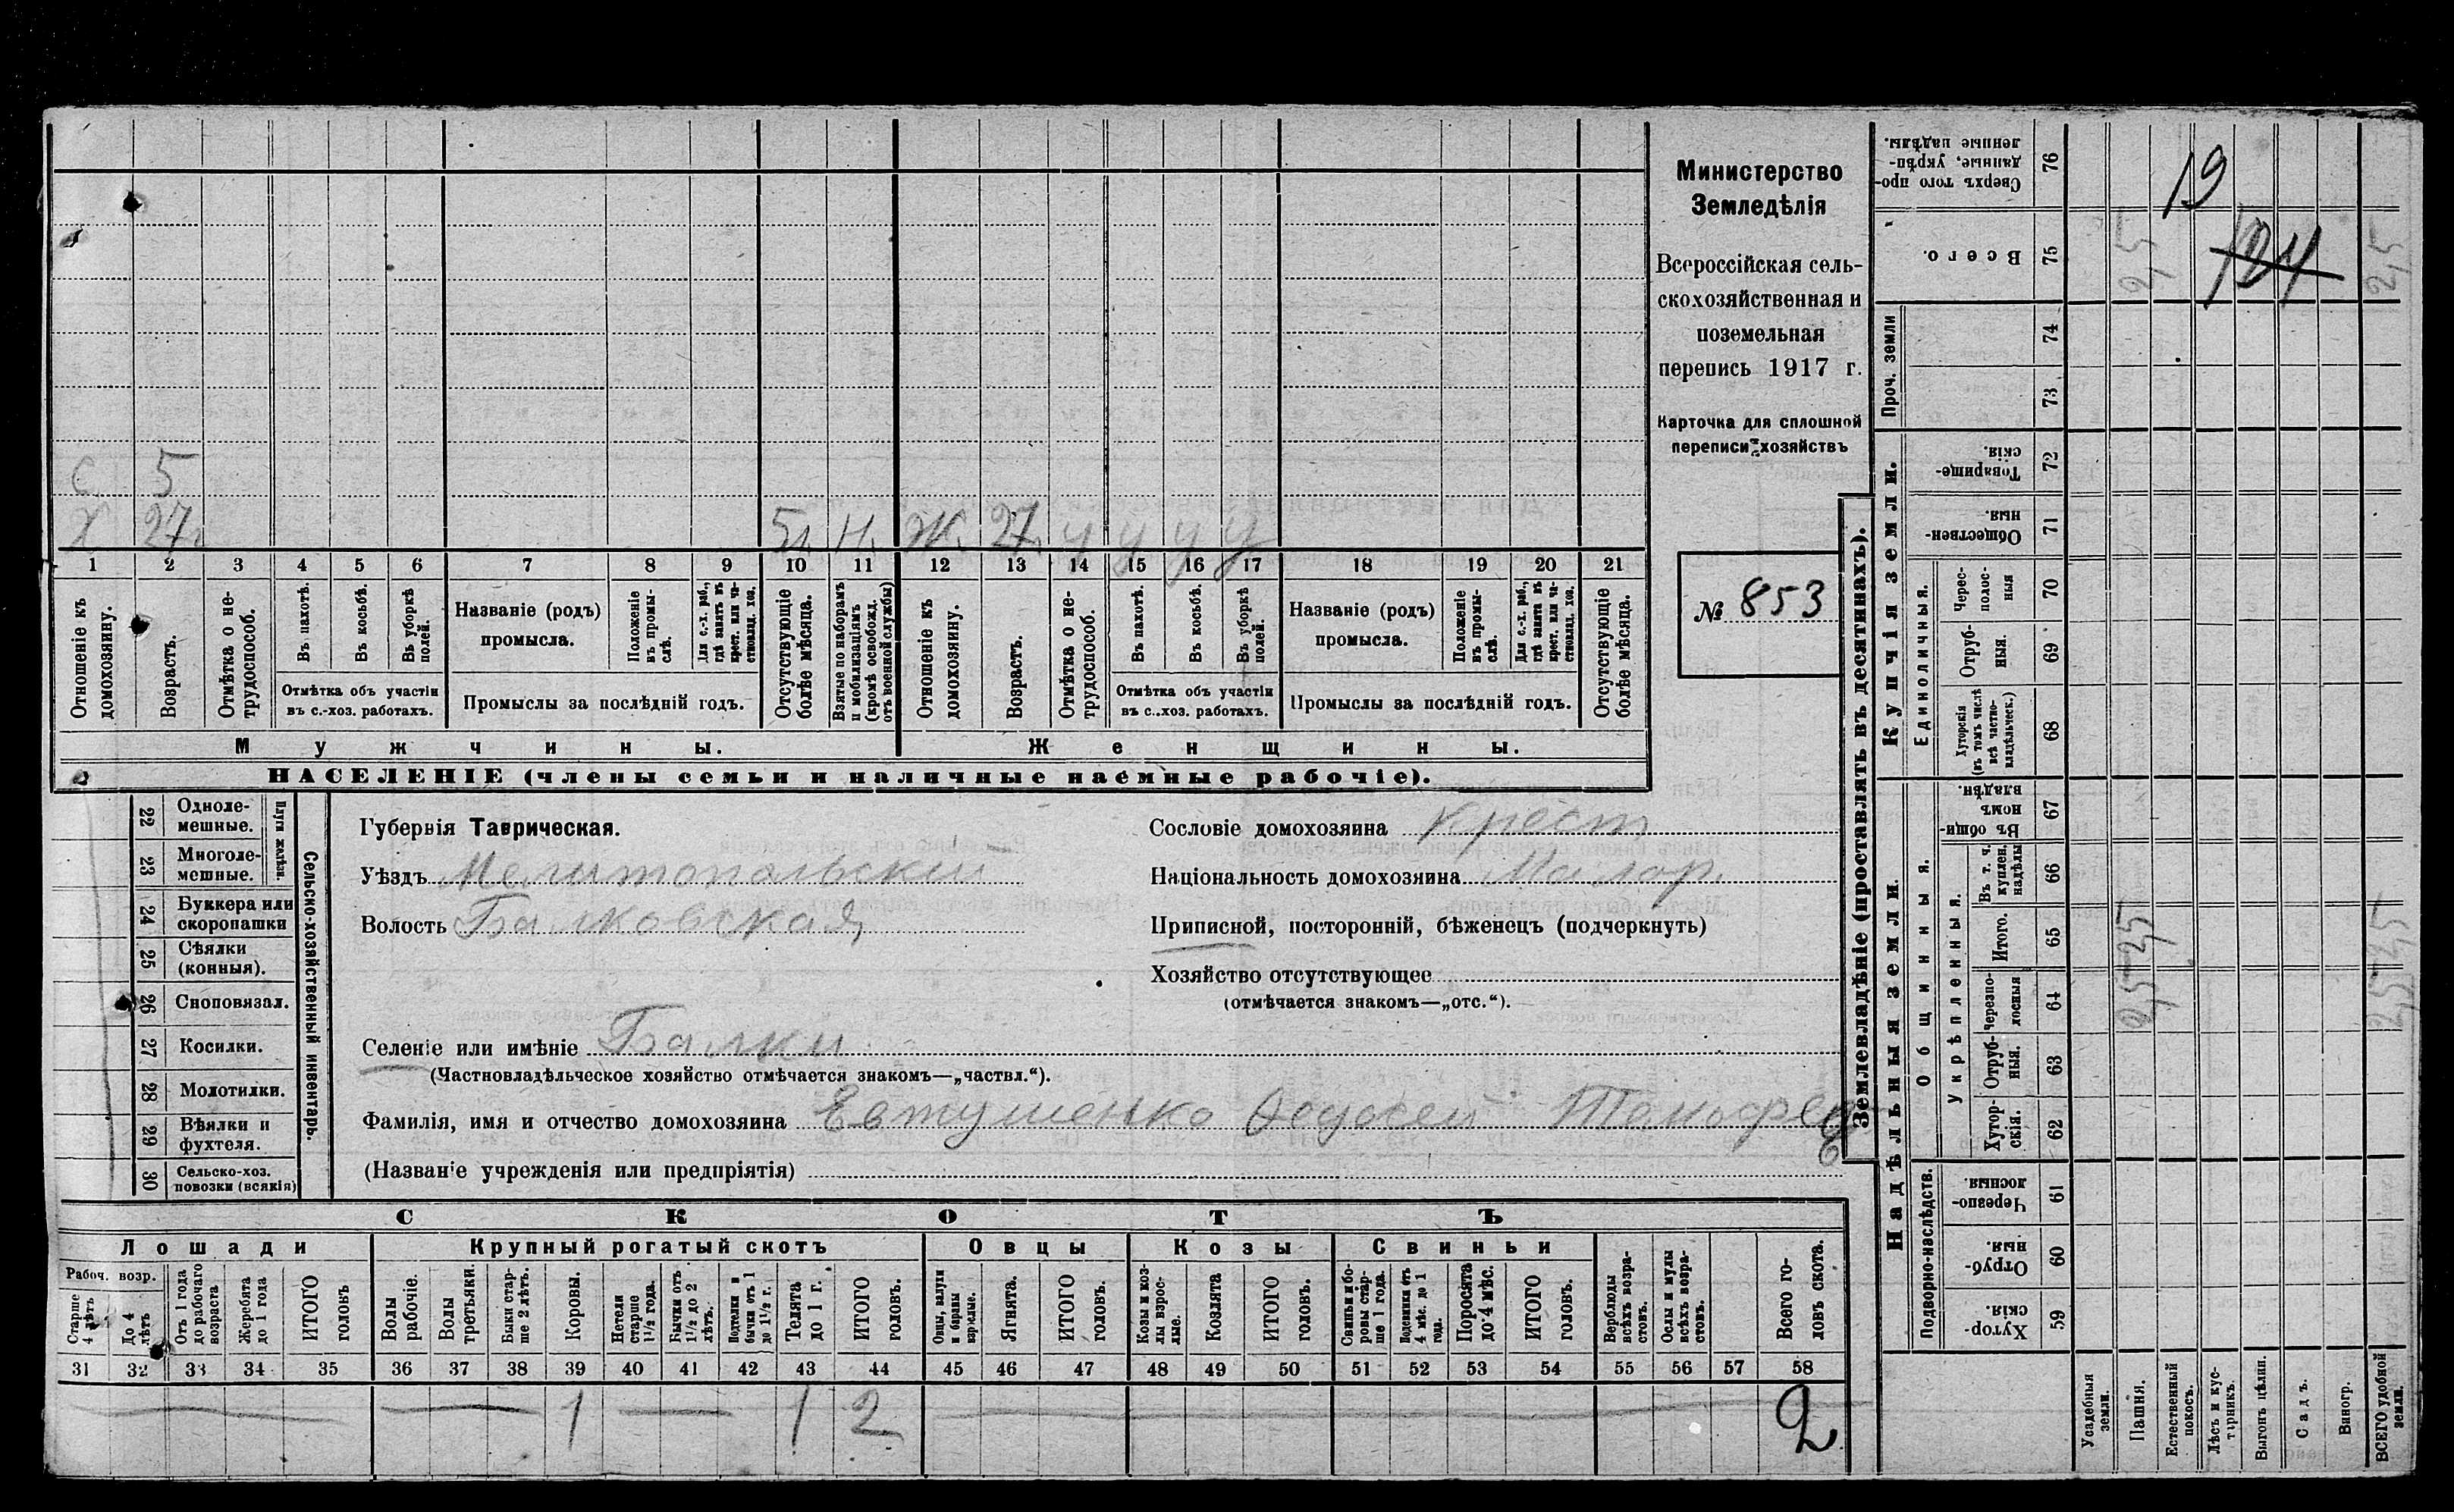 С 5
Х 27. 5л. Н. Ж. 27. У У У У
1 2 3 4 5 6 7 8 9 10 11 12 13 14 15 16 17 18 19 20 21
Отношеніе къ домохозяину.
Возрастъ.
Отмѣтка о не-
трудоспособ.
Въ пахотѣ.
Въ косьбѣ.
Въ уборкѣ полей.
Отмѣтка объ участіи
въ с.-хоз. работахъ.
Названіе (родъ)
промысла.
Положеніе въ промы-
слѣ.
Для с.-х. раб., гдѣ занятъ въ крест. или ча-
стновлад. хоз.
Промыслы за послѣдній годъ.
Отсутствующіе болѣе мѣсяца.
Взятые по наборамъ и мобилизаціямъ (кромѣ освобожд. отъ военной службы)
Отношеніе къ домохозяину.
Возрастъ.
Отмѣтка о не-
трудоспособ.
Въ пахотѣ.
Въ косьбѣ.
Въ уборкѣ полей.
Отмѣтка объ участіи
въ с.-хоз. работахъ.
Названіе (родъ)
промысла.
Положеніе въ промы-
слѣ.
Для с.-х. раб., гдѣ занятъ въ крест. или ча-
стновлад. хоз.
Промыслы за послѣдній годъ.
Отсутствующіе болѣе мѣсяца.
Мужчины. Женщины.
НАСЕЛЕНІЕ (члены семьи и наличные наемные рабочіе).
Министерство
Земледѣлія
Всероссійская сель-
скохозяйственная и
поземельная
перепись 1917 г.
Карточка для сплошной
переписи хозяйствъ
№ 853
22 Одноле-
мешные.
23 Многоле-
мешные.
Плуги желѣзн.
24 Буккера или
скоропашки
25 Сѣялки
(конныя).
26 Сноповязал.
27 Косилки.
28 Молотилки.
29 Вѣялки и
фухтеля.
30 Сельско-хоз.
повозки (всякія)
Сельско-хозяйственный инвентарь.
Губернія Таврическая.
Уѣздъ Мелитопольский
Волость Балковская
Сословіе домохозяина Крест
Національность домохозяина Малор.
Приписной, посторонній, бѣженецъ (подчеркнуть)
Хозяйство отсутствующее
(отмѣчается знакомъ—„отс.“).
Селеніе или имѣніе Балки
(Частновладѣльческое хозяйство отмѣчается знакомъ—„частвл.“).
Фамилія, имя и отчество домохозяина Евтушенко Ѳедосей
(Названіе учрежденія или предпріятія)
СКОТЪ
Лошади Крупный рогатый скотъ Овцы Козы Свиньи
Рабоч. возр.
Старше 4 лѣтъ
До 4 лѣтъ
Отъ 1 года до рабочаго возраста
Жеребята до 1 года
ИТОГО головъ
Волы рабочіе.
Волы третьяки.
Быки стар-
ше 2 лѣтъ.
Коровы.
Нетели старше 1½ года.
Бычки отъ 1½ до 2 лѣтъ.
Подтелки и бычки отъ 1 до 1½ г.
Телята до 1 г.
ИТОГО головъ.
Овцы, валухи и бараны взрослые.
Ягнята.
ИТОГО головъ.
Козы и коз-
лы взрос-
лые.
Козлята
ИТОГО головъ.
Свиньи и бо-
ровы стар-
ше 1 года.
Подсвинки отъ 4 мѣс. до 1 года.
Поросята до 4 мѣс.
ИТОГО головъ.
Верблюды всѣхъ возра-
стовъ.
Ослы и мулы всѣхъ возра-
стовъ.
Всего го-
ловъ скота.
31 32 33 34 35 36 37 38 39 40 41 42 43 44 45 46 47 48 49 50 51 52 53 54 55 56 57 58
1 1 2 2
Землевладѣніе (проставлять въ десятинахъ).
Купчія земли.
Надѣльныя земли.
Сверхъ того про-
данные, укрѣп-
ленные надѣлы.
76
19
Всего.
75
2,5 124 2,5
Проч. земли
74
73
Товарище-
скія.
72
Обществен-
ныя.
71
Единоличныя.
Черес-
полос-
ныя
70
Отруб-
ныя.
69
Хуторскія (въ томъ числѣ всѣ частно-
владѣльческ.)
68
Общинныя.
Въ общи-
номъ
владѣн.
67
Укрѣпленныя.
Въ т. ч. куплен. надѣлы
66
Итого.
65
2,5 2,5
Черезпо-
лосныя
64
2,5 2,5
Отруб-
ныя.
63
Хутор-
скія.
62
Подворно-наслѣдств.
Черезпо-
лосныя.
61
Отруб-
ныя.
60
Хутор-
скія.
59
Усадебныя земли.
Пашня.
Естественный покосъ.
Лѣсъ и кус-
тарникъ.
Выгонъ цѣлин.
Садъ.
Виногр.
ВСЕГО удобной земли.